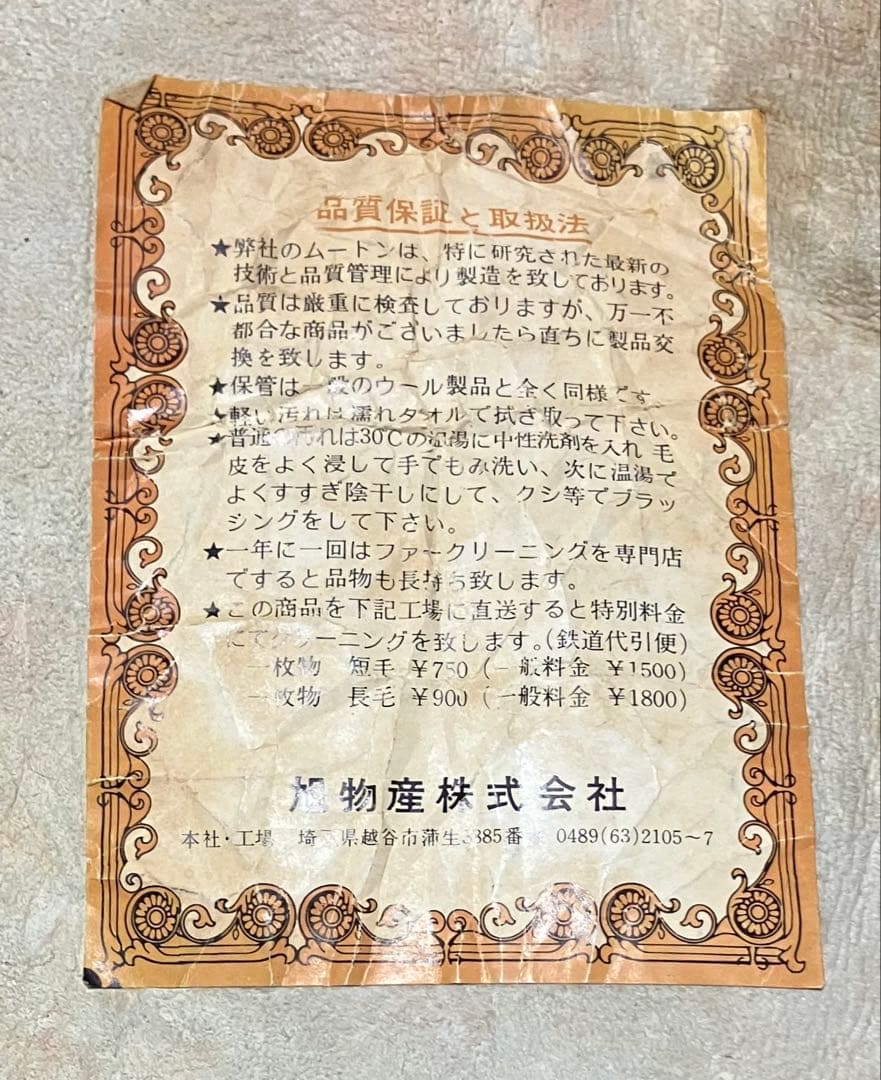 品質保証と取扱法
★弊社のムートンは、特に研究された最新の
技術と品質管理により製造を致しております。
★品質は厳重に検査しておりますが、万一不
都合な商品がございましたら直ちに製品交
換を致します。
★保管は一般のウール製品と全く同様です
★軽い汚れは濡れタオルで拭き取って下さい。
★普通の汚れは30℃の温湯に中性洗剤を入れ 毛
皮をよく浸して手でもみ洗い、次に温湯で
よくすすぎ陰干しにして、クシ等でブラッ
シングをして下さい。
★一年に一回はファークリーニングを専門店
ですると品物も長持ち致します。
★この商品を下記工場に直送すると特別料金
にてクリーニングを致します。(鉄道代引便)
一枚物 短毛 ¥750 (一般料金 ¥1500)
一枚物 長毛 ¥900 (一般料金 ¥1800)
旭物産株式会社
本社・工場 埼玉県越谷市蒲生 885番 0489(63)2105〜7